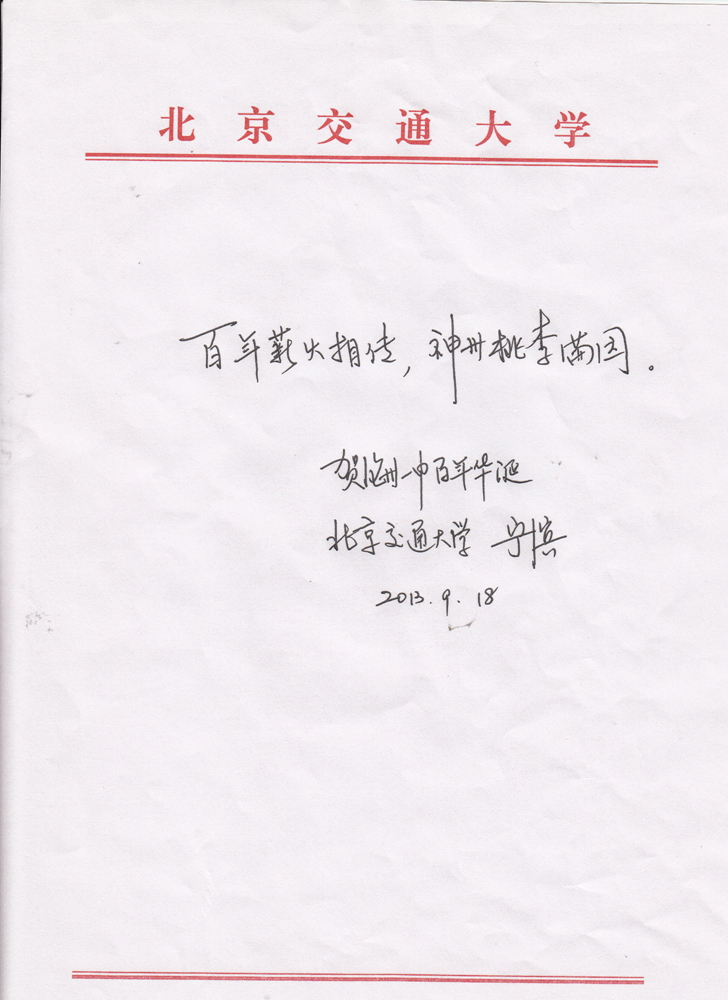 北京交通大学
百年薪火相传，神州桃李满园。
贺州一中百年华诞
北京交通大学 宁滨
2013.9.18